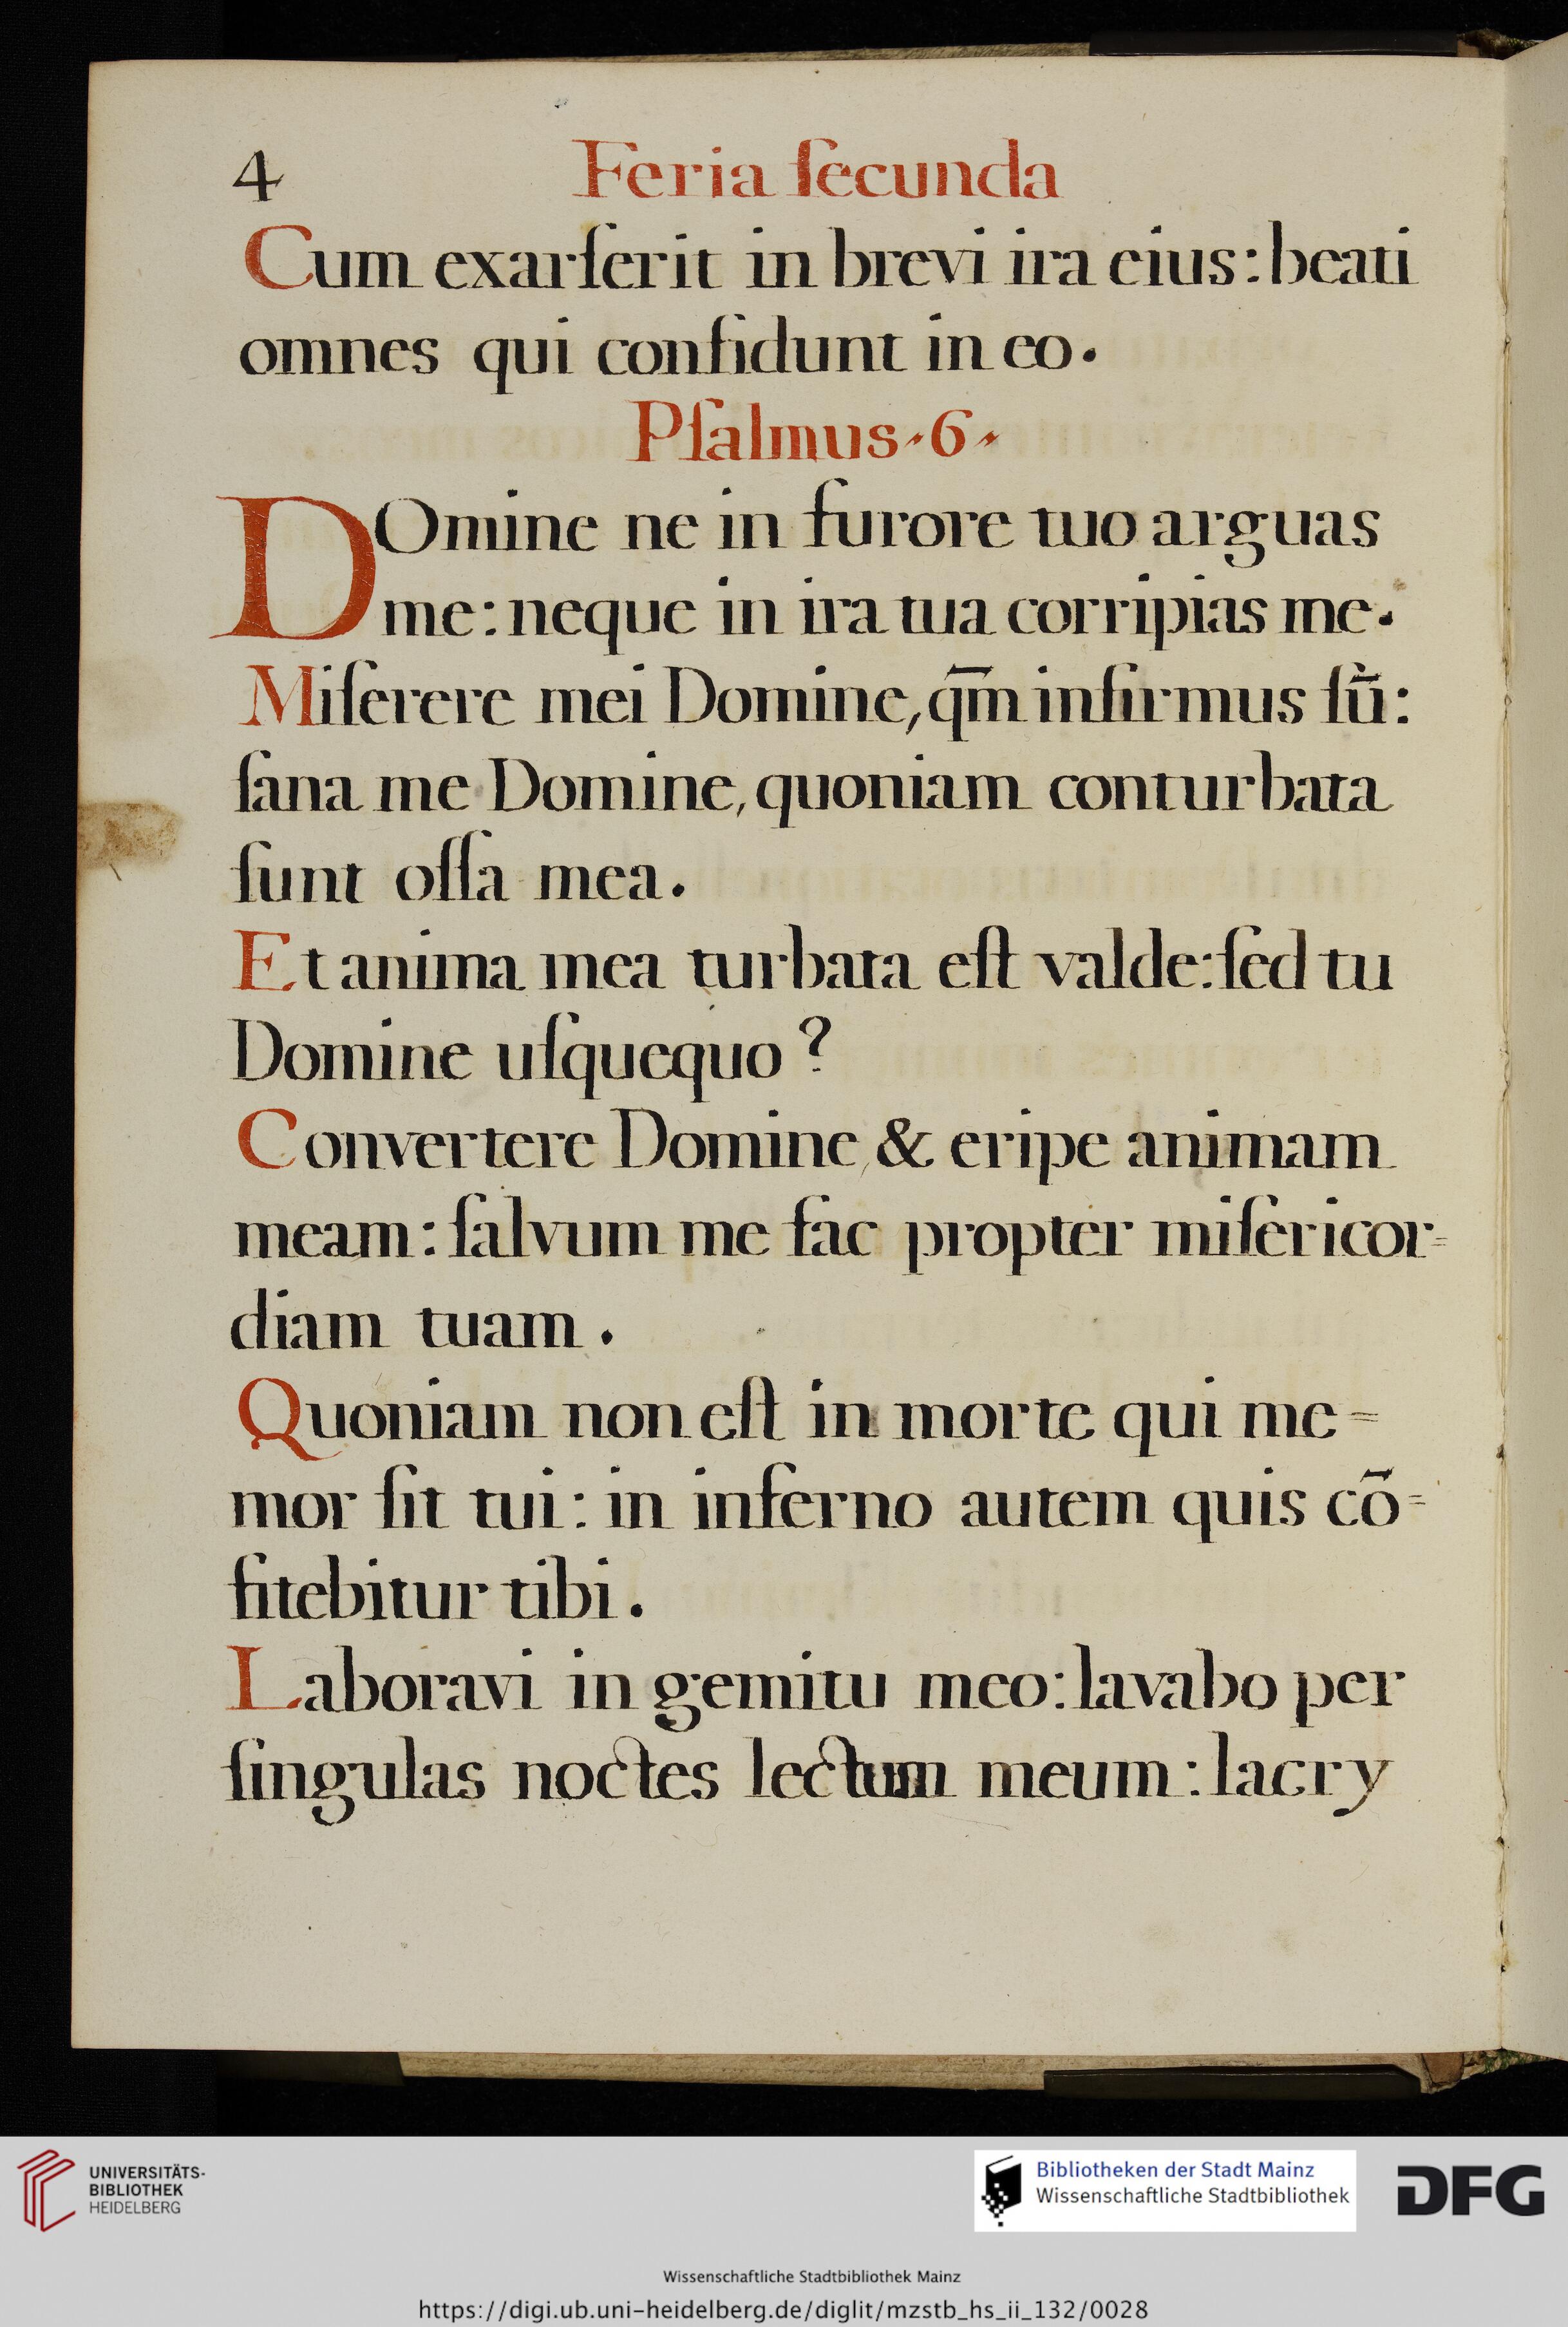 4 Feria ſecunda
Cum exarſerit in brevi ira eius: beati
omnes qui confidunt in eo.
Pſalmus 6
DOmine ne in furore tuo arguas
me: neque in ira tua corripias me.
Miſerere mei Domine, qm̄ infirmus ſũ:
ſana me Domine, quoniam conturbata
ſunt oſſa mea.
Et anima mea turbata eſt valde: ſed tu
Domine uſquequo?
Convertere Domine, & eripe animam
meam: ſalvum me fac propter miſericor=
diam tuam.
Quoniam non eſt in morte qui me=
mor ſit tui: in inferno autem quis cõ=
fitebitur tibi.
Laboravi in gemitu meo: lavabo per
ſingulas noctes lectum meum: lacry
UNIVERSITÄTS-
BIBLIOTHEK
HEIDELBERG
Bibliotheken der Stadt Mainz
Wissenschaftliche Stadtbibliothek
DFG
Wissenschaftliche Stadtbibliothek Mainz
https://digi.ub.uni-heidelberg.de/diglit/mzstb_hs_ii_132/0028